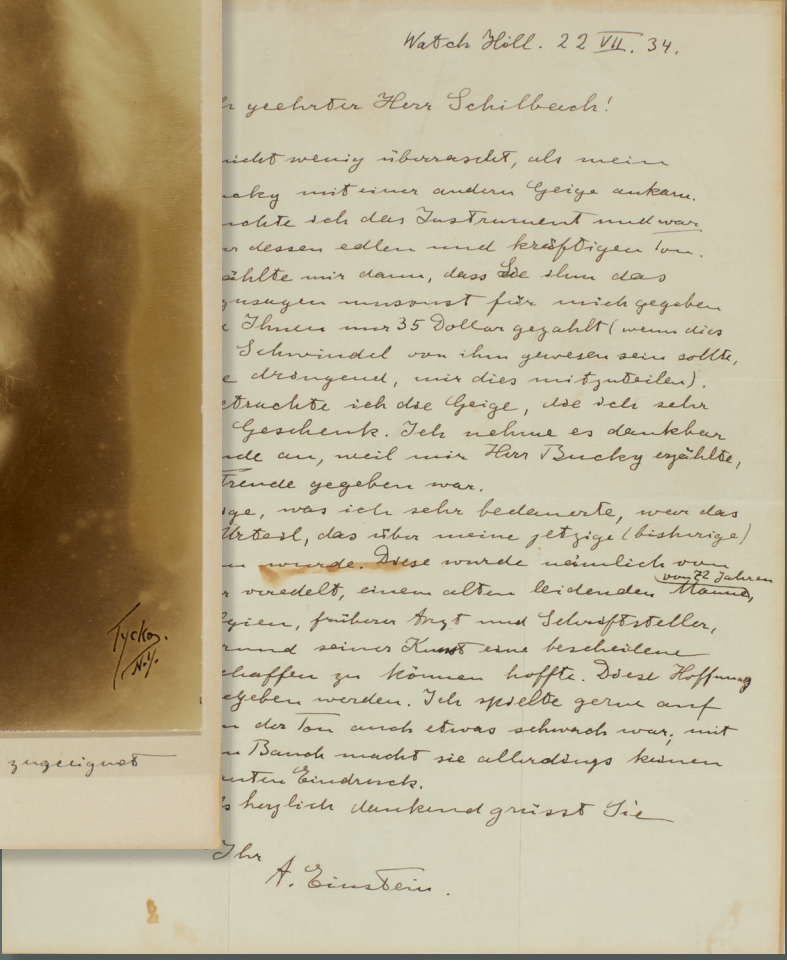 Watch Hill. 22 VII. 34.
geehrter Herr Schilbach!
nicht wenig überrascht, als mein
ucky mit einer andern Geige ankam.
chte ich das Instrument und war
dessen edlen und kräftigen Ton.
ählte mir dann, dass Sie ihm das
zusagen umsonst für mich gegeben
Ihnen nur 35 Dollar gezahlt (wenn dies
Schwindel von ihm gewesen sein sollte,
e dringend, mir dies mitzuteilen).
etrachte ich die Geige, die ich sehr
Geschenk. Ich nehme es dankbar
de an, weil mir Herr Bucky erzählte,
Freude gegeben war.
ige, was ich sehr bedauerte, war das
Urteil, das über meine jetzige (bisherige)
n wurde. Diese wurde nämlich vom
von 72 Jahren
r veredelt, einem alten leidenden Manne,
gien, früherer Arzt und Schriftsteller,
rund seiner Kunst eine bescheidene
chaffen zu können hoffte. Diese Hoffnung
egeben werden. Ich spielte gerne auf
n der Ton auch etwas schwach war; mit
n Bauch macht sie allerdings keinen
Eindruck.
s herzlich dankend grüsst Sie
Ihr
A. Einstein.
Tyckos.
N.Y.
zugeeignet